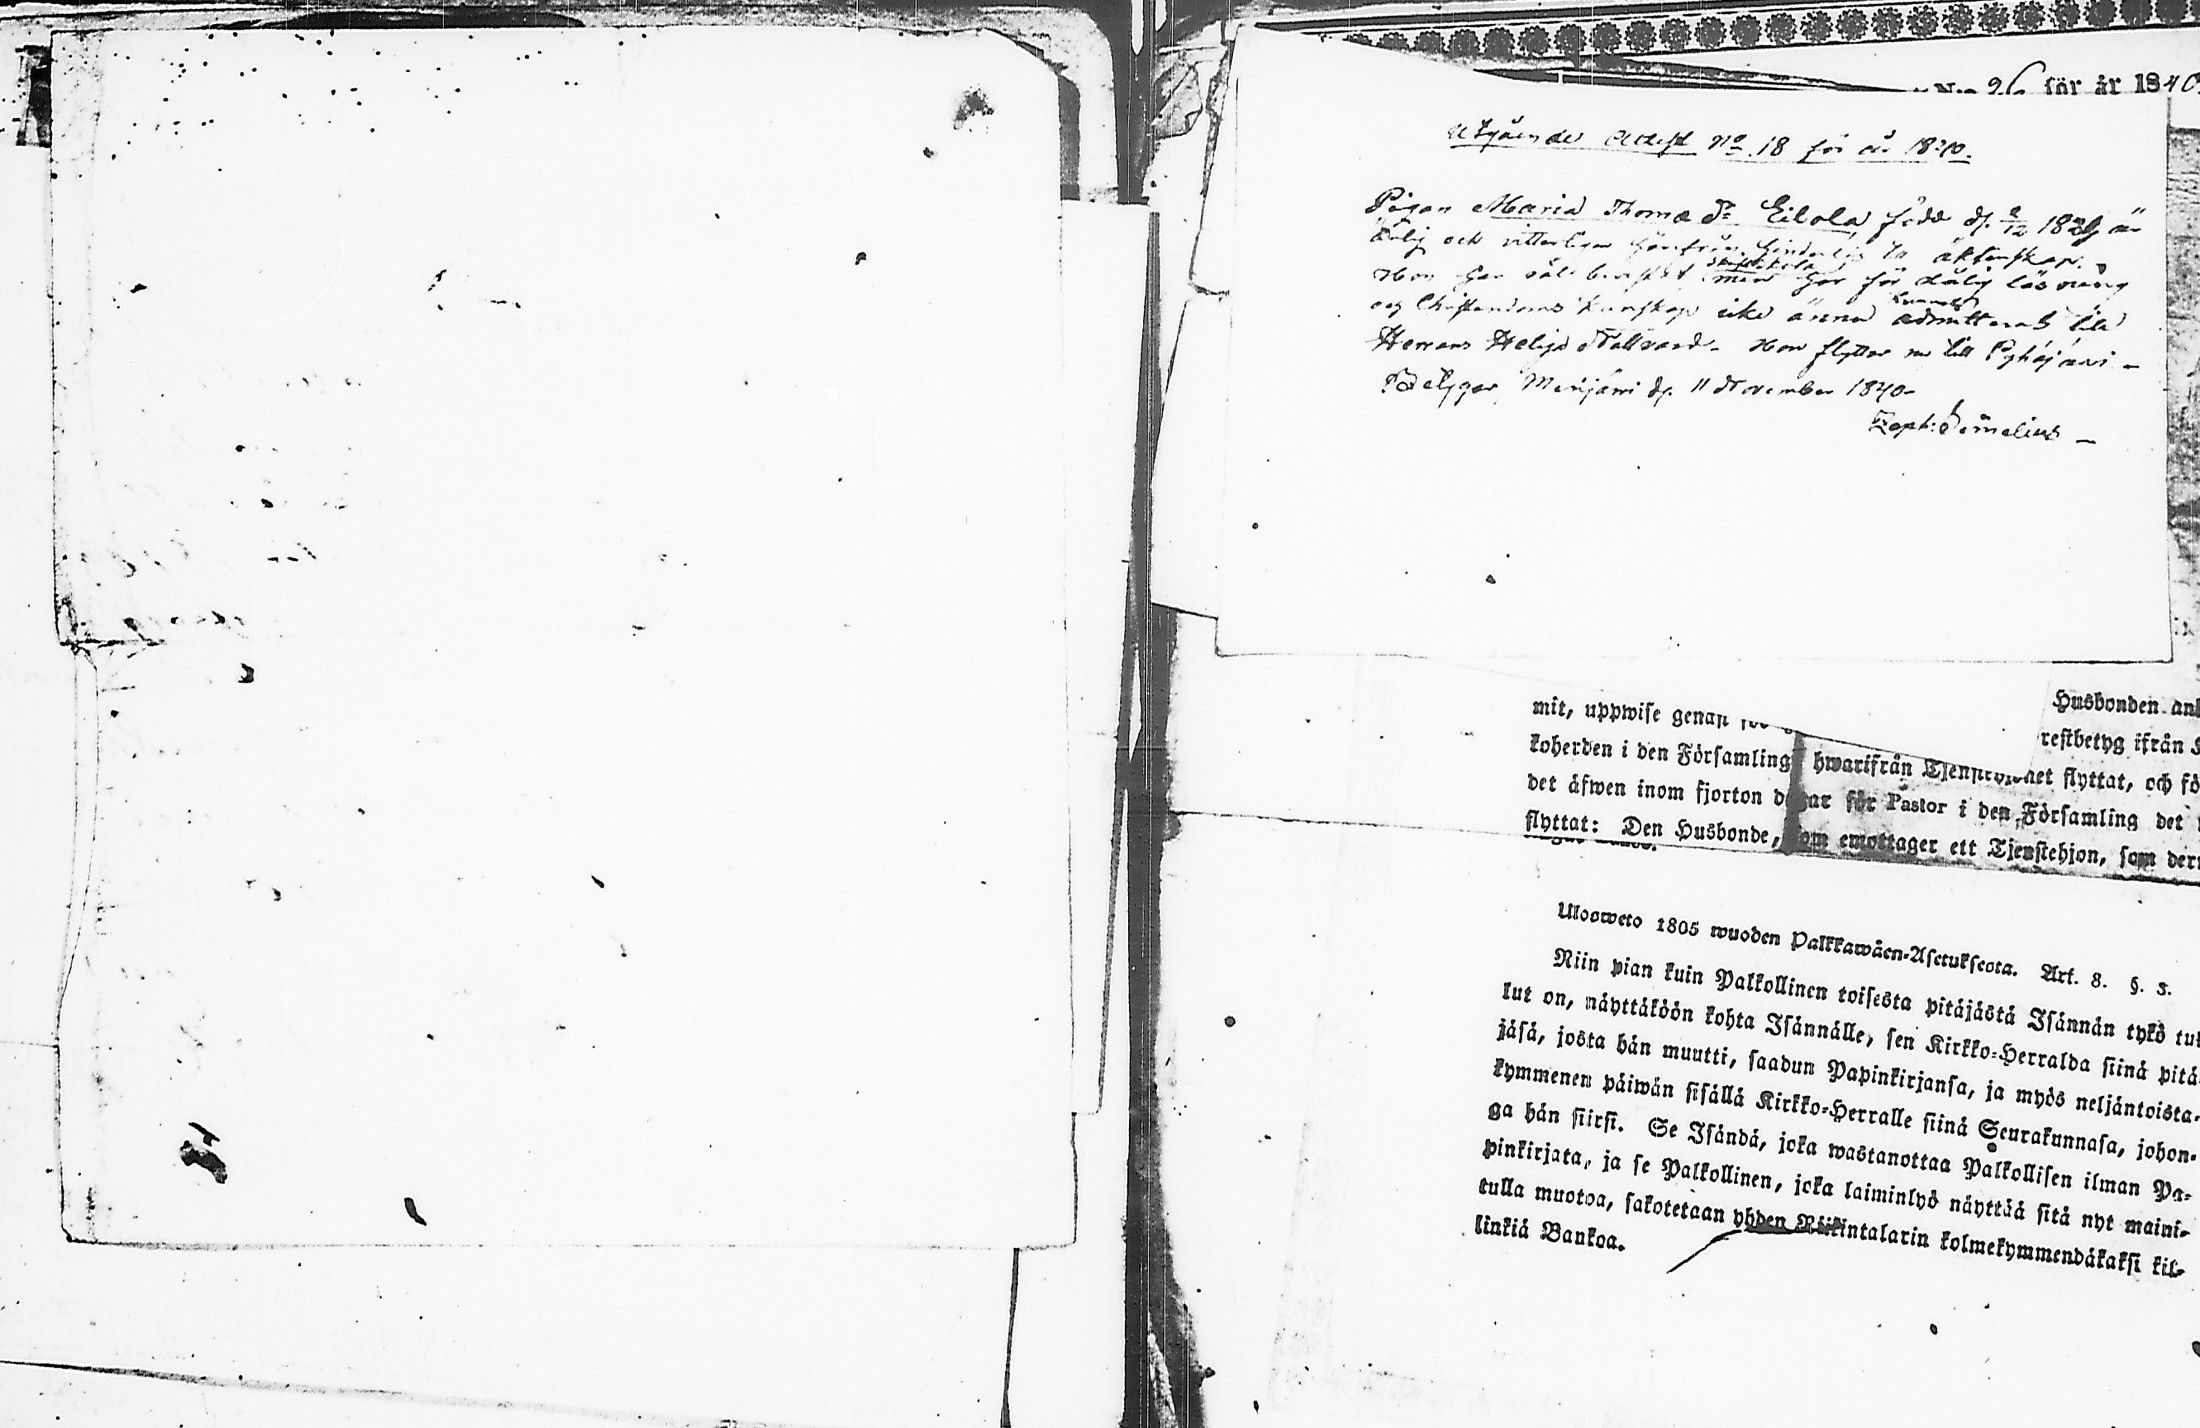 No 26 för år 1840
Utgående Attest No 18 för år 1840.
Pigan Maria Thomæ Dr Eilola född d. 2/12 1821, är
ärlig och vitterligen hinderlös to äktenskap.
Hon har väl bevistat skriftskola men har för dålig läsning
och Christendoms kunskap icke ännu kunnat admitteras till
Herrans Heliga Nattvard. Hon flyttar nu till Pyhäjärvi -
Betygar, Merijärvi d. 11 November 1840-
Zeph:
Husbonden
mit, uppwise genast
restbetyg ifrån
koherden i den Församling hwarifrån Tjenstehjonet flyttat, och
det åfwen inom fjorton dagar för Pastor i den Församling det
flyttat: Den Husbonde, som emottager ett Tjenstehjon, som
Ulosweto 1805 wuoden Palkkawåen-Asetuksesta. Art. 8. §. 3.
Niin pian kuin Palkollinen toisesta pitåjåstå Isånnån tykö
lut on, nåyttåköön kohta Isånnålle, sen Kirkko-Herralda siinå pitå-
jåså, josta hån muutti, saadun Papinkirjansa, ja myös neljåntoista-
kymmenen påiwån sisållå Kirkko-Herralle siinå Seurakunnasa, johon-
ga hån siirsi. Se Isåndå, joka wastanottaa Palkollisen ilman Pa-
pinkirjata, ja se Palkollinen, joka laiminlyö nåyttåå sitå nyt maini-
tulla muotoa, sakotetaan yhden Riikintalarin kolmekymmendåkaksi kil-
linkiå Bankoa.